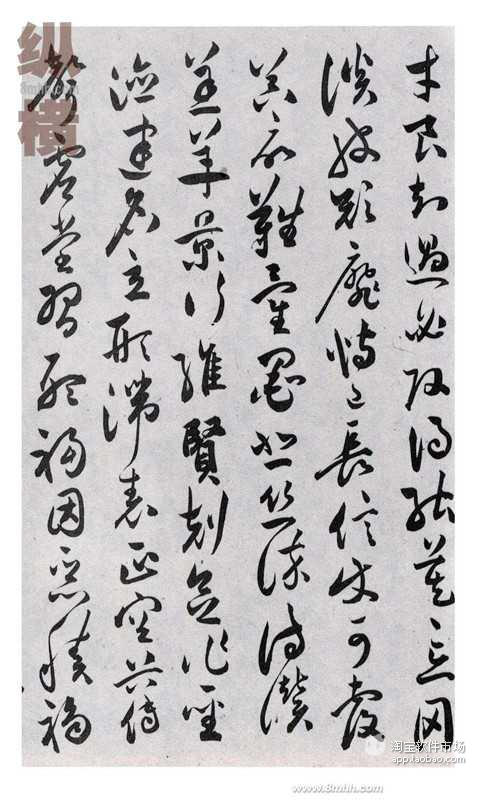 才良知過必改得能莫忘罔
談彼短靡恃己長信使可覆
器欲難量墨悲絲染詩讚
羔羊景行維賢剋念作聖
德建名立形端表正空谷傳
聲虛堂習聽禍因惡積福
纵横
淘宝软件市场
app.taobao.com
www.8mhh.com